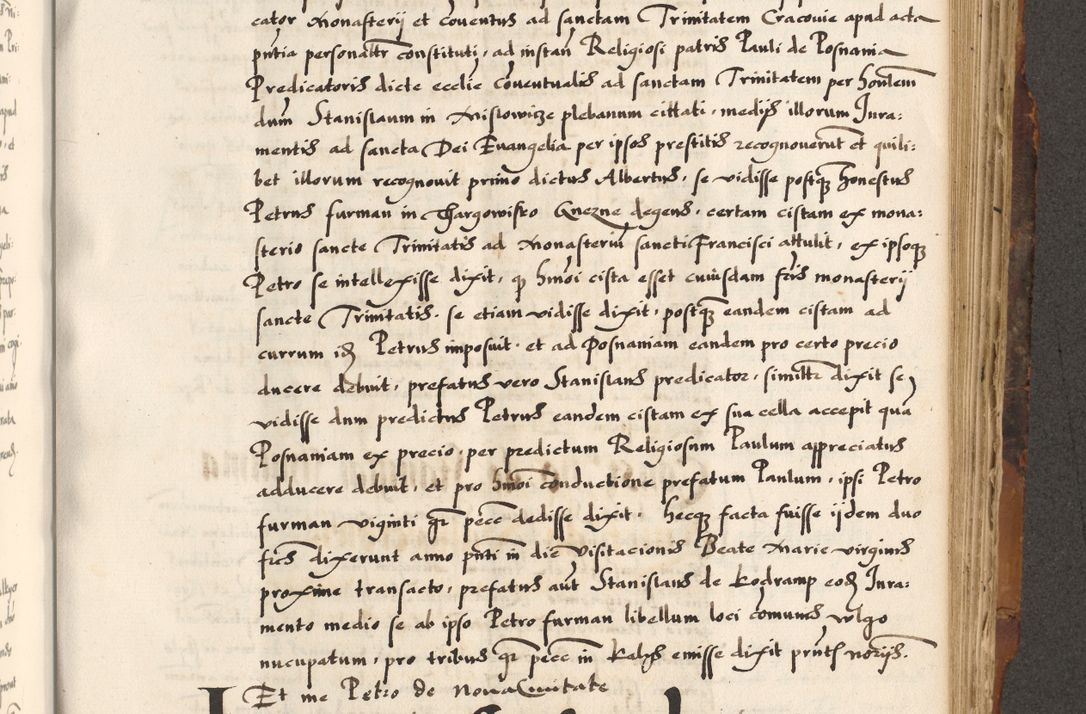 cator Monasterij et Coventus ad sanctam Trinitatem Cracovie apud acta
pntia personaltr constituti, ad instan Religiosi patris Pauli de Posnania
Predicatoris dicte ecclie Coventualis ad sanctam Trinitatem per honlem
dum Stanislaum in Mislowicze plebanum cittati, medijs illorum Jura:
mentis ad sancta Dei Evangelia per ipsos prestitis recognoverut et quili:
bet illorum recognouit primo dictus Albertus, se vidisse postq honestus
Petrus furman in Thargowisko Gnezne degens, certam cistam ex mona:
sterio sancte Trinitatis ad Monasteriu sancti Francisci attulit, ex ipsoq
Petro se intellexisse dixit, q hmoi cista esset cuiusdam fris monasterij
sancte Trinitatis. se etiam vidisse dixit, postq eandem cistam ad
currum id Petrus imposuit. et ad Posnaniam eandem pro certo precio
ducere debuit, prefatus vero Stanislaus predicator, similtr dixit se
vidisse dum predictus Petrus eandem cistam ex sua cella accepit qua
Posnaniam ex precio, per predictum Religiosum Paulum appreciatus
adducere debuit, et pro hmoi conductione prefatum Paulum, ipsi Petro
furman viginti gr pecc dedisse dixit. hecq facta fuisse ijdem duo
fres dixerunt anno pnti in die Visitacionis Beate Marie virginis
proxime transacto, prefatus aut Stanislaus de Kodramp eod Jura:
mento medio se ab ipso Petro furman libellum loci comunis vulgo
nucupatum, pro tribus gr pecc in emisse dixit pntibs
Et me Petro de Nova Civitate